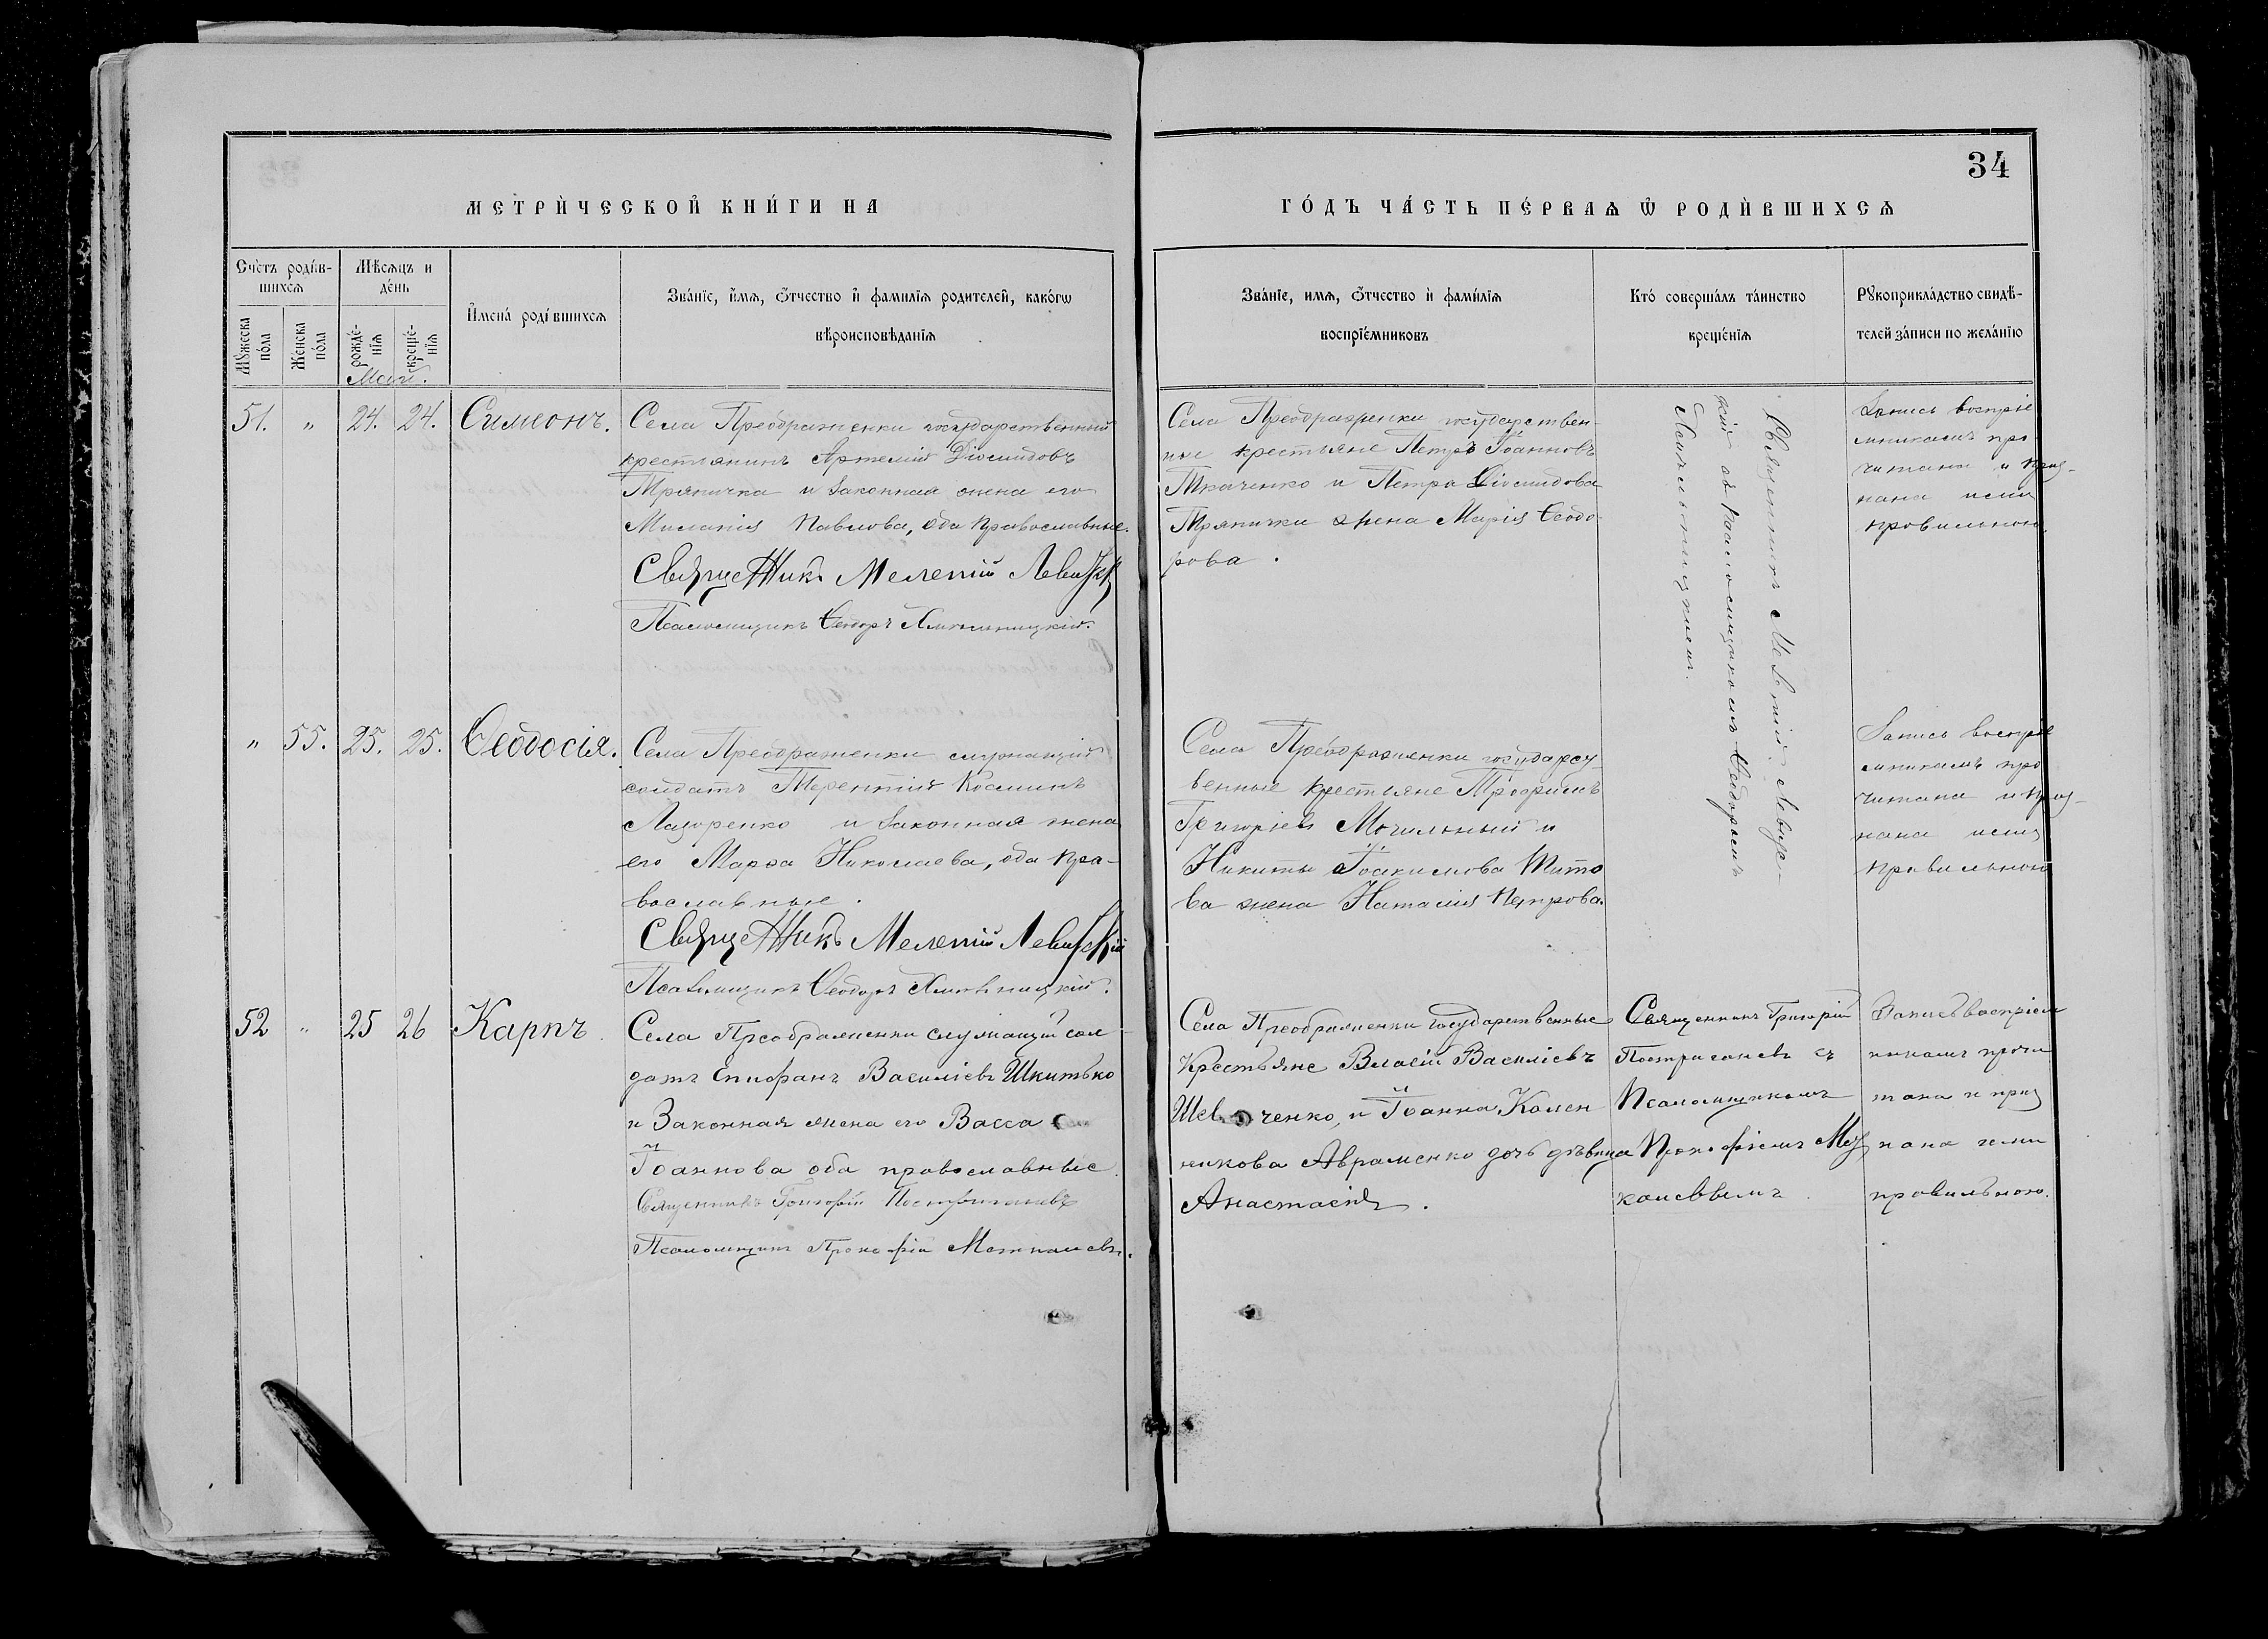 34
МЕТРИ́ЧЕСКОЙ КНИ́ГИ НА
ГО́ДЪ ЧА́СТЬ ПЕ́РВАѦ Ѽ РОДИ́ВШИХСѦ
Сче́тъ роди́в-
шихсѧ
Мѣ́сѧцъ и
де́нь
Мꙋ́жеска
по́ла
Же́нска
по́ла
рожде́-
нїѧ
креще́-
нїѧ
И҆мена́ роди́вшихсѧ
Зва́нїе, и҆́мѧ, ѻ҆́тчество и҆ фами́лїѧ роди́телей, како́гѡ
вѣроисповѣ́данїѧ
Зва́нїе, имѧ, ѻ҆́тчество и҆ фами́лїѧ
воспрїе́мниковъ
Кто́ соверша́лъ та́инство
креще́нїѧ
Рꙋкоприкла́дство свидѣ́-
телей за́писи по жела́нїю
Май.
51. " 24. 24. Симеонъ.
Села Преображенки государственный
крестьянинъ Артемій Діомидовъ
Тряпичка и законная жена его
Миланія Павлова, оба православные.
Священникъ Мелетій Левицкій
Псаломщикъ Ѳеодоръ Хмельницкій.
Села Преображенки государствен-
ные крестьяне Петръ Іоанновъ
Ткаченко и Петра Діомидова
Тряпички жена Марія Ѳеодо-
рова.
Священникъ Мелетій Левиц-
кій съ псаломщикомъ Ѳеодоромъ
Хмельницкимъ.
Запись воспріе
мникамъ про
читана и приз-
нана ими
правильною.
" 55. 25. 25. Ѳеодосія.
Села Преображенки служащій
солдатъ Терентій Косминъ
Лазоренко и законная жена
его Марѳа Николаева, оба пра-
вославные.
Священникъ Мелетій Левицкій
Псаломщикъ Ѳеодоръ Хмельницкій.
Села Преображенки государст
венные крестьяне Трофимъ
Григоріевъ Могильный и
Никиты Іоакимова Тито
ва жена Наталія Петрова.
Запись воспріе
мникамъ про
читана и приз-
нана ими
правильною
52 " 25 26 Карпъ
Села Преображенки служащій сол
датъ Епифанъ Василіевъ Шкитько
и Законная жена его Васса
Іоаннова оба православные
Священникъ Григорій
Псаломщикъ Прокофій
Села Преображенки государственные
Крестьяне Власій Василіевъ
Шевченко, и Іоанна
Авраменко дочь дѣвица
Анастасія.
Священникъ Григорій
съ
Псаломщикомъ
Прокофіемъ
Запись воспріем
никамъ прочи
тана и приз
нана ими
правильною.